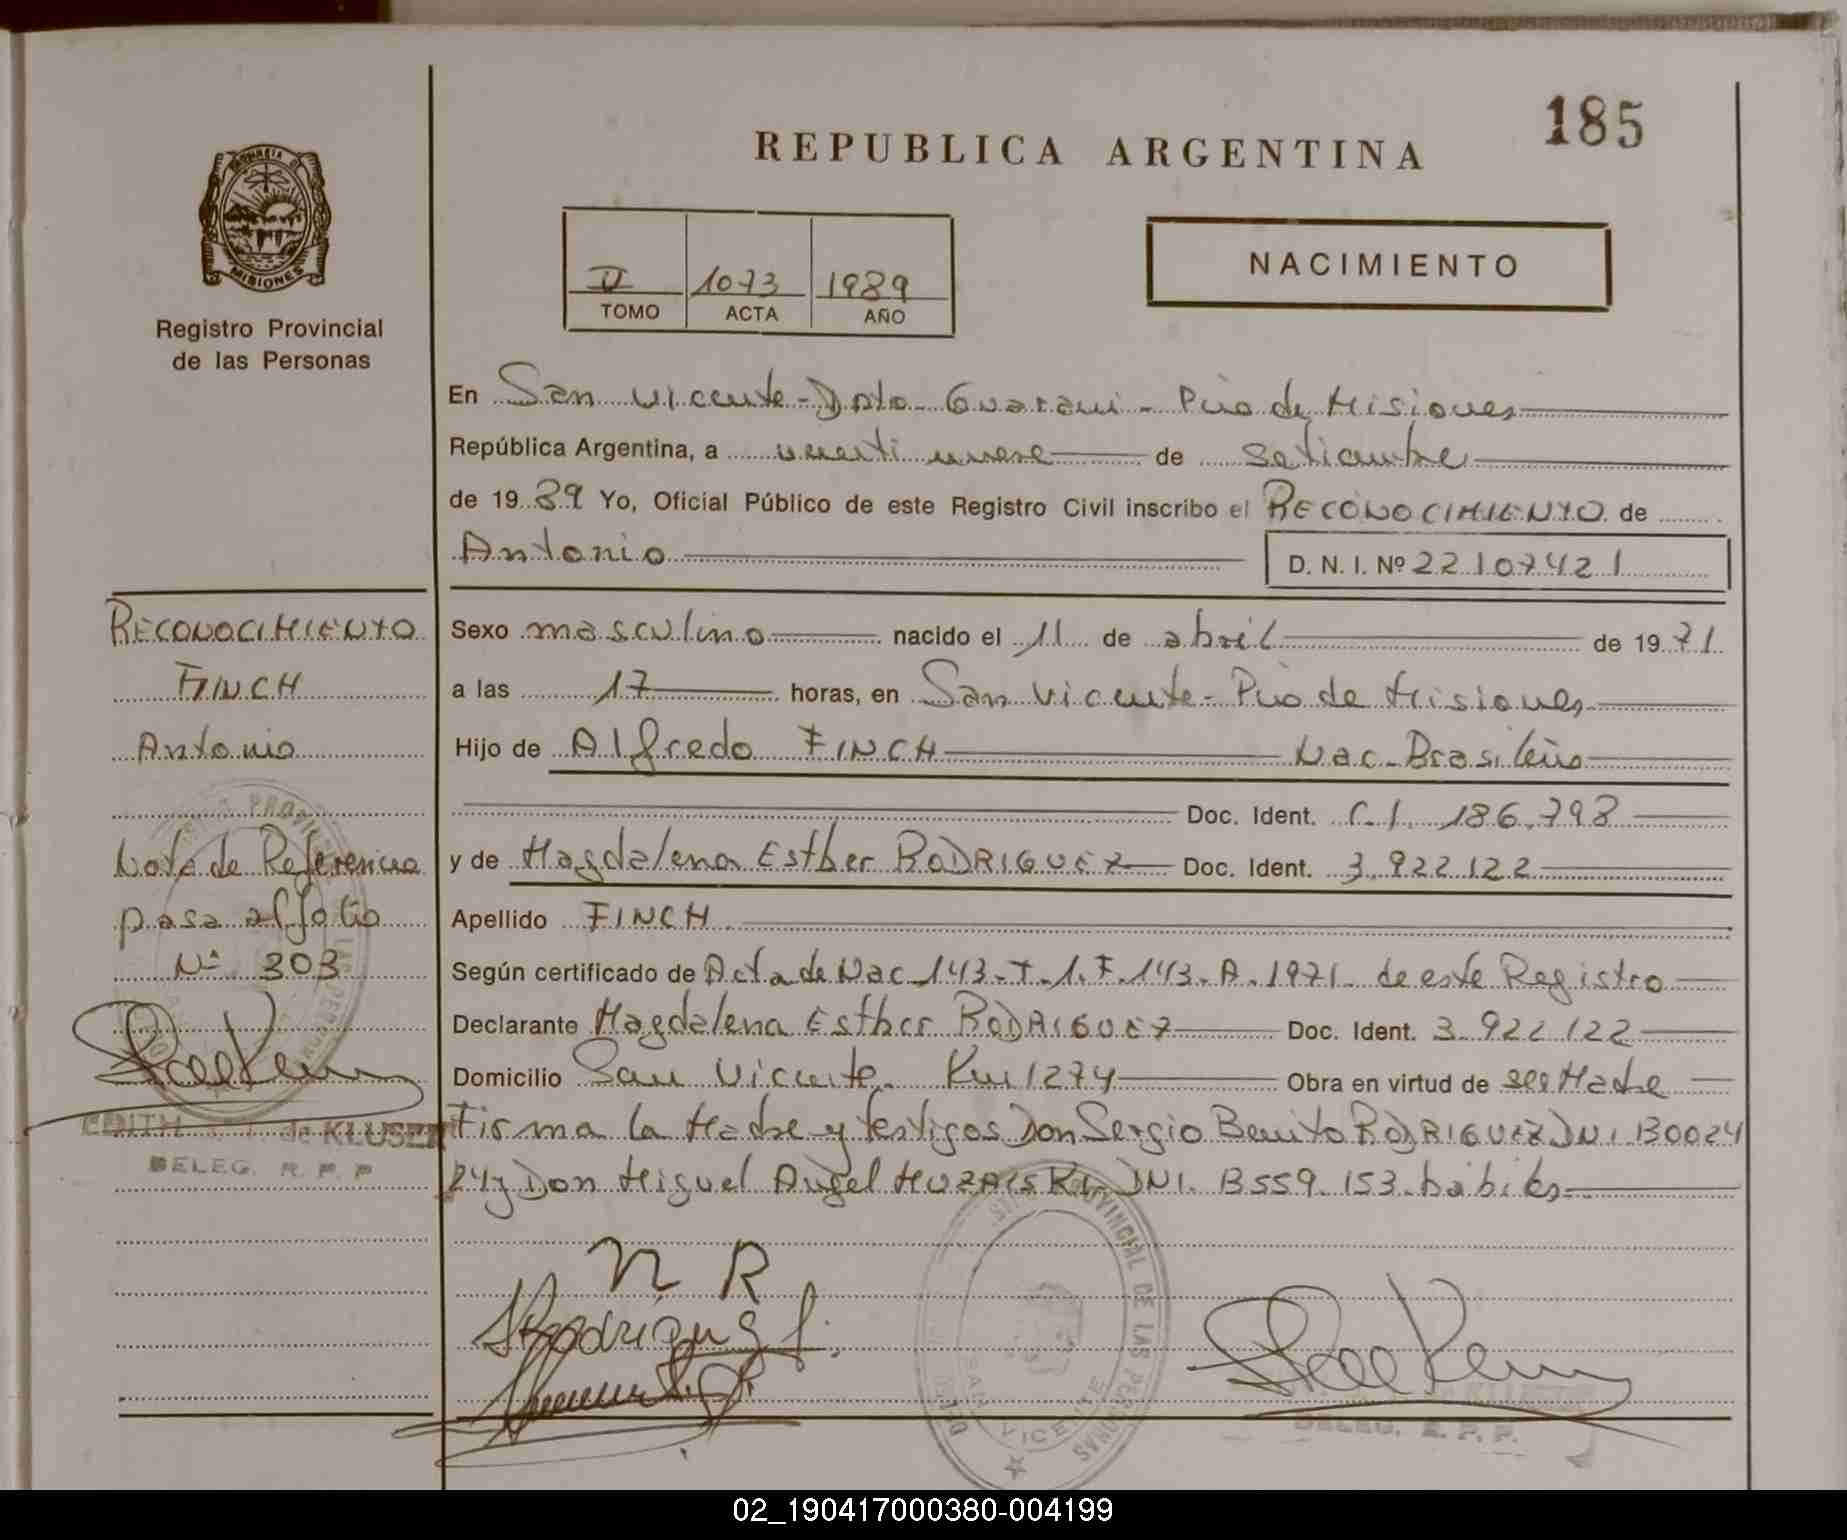 185
REPUBLICA ARGENTINA
PROVINCIA DE
MISIONES
Registro Provincial
de las Personas
II 1073 1989
TOMO ACTA AÑO
NACIMIENTO
En San Vicente - Dpto - Guarani - Pcia de Misiones
República Argentina, a veinti nueve de setiembre
de 19 89 Yo, Oficial Público de este Registro Civil inscribo el RECONOCIMIENTO de
Antonio
D. N. I. Nº 22107421
Sexo masculino nacido el 11 de abril de 19 71
a las 17 horas, en San Vicente - Pcia de Misiones
Hijo de Alfredo FINCH Nac - Brasileño
Doc. Ident. C.I. 186.798
y de Magdalena Esther RODRIGUEZ Doc. Ident. 3.922.122
Apellido FINCH.
Según certificado de Acta de Nac 143 - T - 1. F. 143 - A. 1971 - de este Registro
Declarante Magdalena Esther RODRIGUEZ Doc. Ident. 3.922.122
Domicilio San Vicente. Km 1274 Obra en virtud de ser Madre
Firma la Madre y testigos Don Sergio Benito RODRIGUEZ DNI 130024
24 y Don Miguel Angel DNI. 8559.153 habiles
RECONOCIMIENTO
FINCH
Antonio
Nota de Referencia
pasa al folio
Nº 303
EDITH de KLUSEN
DELEG. R. P. P
M R
Rodriguez
PROVINCIAL DE LAS PERSONAS
SAN VICENTE
DELEG. R. P. P.
02_190417000380-004199